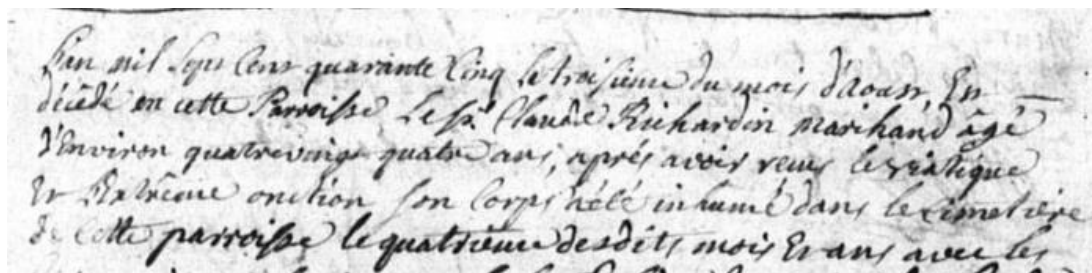 L'an mil sept cent quarante cinq le troisieme du mois d'aoust, Est
décédé en cette Parroisse Le Sr. Claude Richardin marchand âgé
d'Environ quatrevingt quatre ans, aprés avoir reçus le viatique
Et Extrême onction son Corps a été inhumé dans le Cimetière
de Cette parroisse le quatrieme desdits mois Et ans avec les